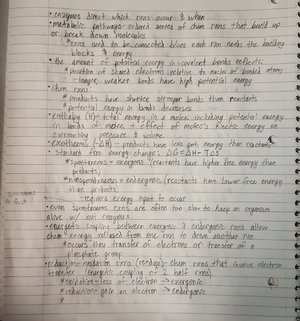 • enzymes direct which rxns occur & when
• metabolic pathways- ordered series of chem rxns that build up
or break down molecules
* rxns need to be connected b/c each rxn needs the building
blocks & energy
• the amount of potential energy in covalent bonds reflects:
* position of shared electrons relative to nuclei of bonded atoms
* longer, weaker bonds have high potential energy
• Chem rxns:
* products have shorter stronger bonds than reactants
* potential energy in bonds decreases
• enthalpy (H)- total energy in a molec. including potential energy
in bonds of molec + effect of molec's kinetic energy on
surrounding pressure & volume
• exothermic (-ΔH) - products have less pot. energy than reactants
• standard free energy change: ΔG = ΔH - TΔS
* spontaneous = exergonic (reactants have higher free energy than
products)
* nonspontaneous = endergonic (reactants have lower free energy
than products)
requires energy input to occur
• even spontaneous rxns are often too slow to keep an organism
alive w/out enzymes
• energetic coupling between exergonic & endergonic rxns allow
chem energy released from one rxn to drive another rxn
* occurs thru transfer of electrons or transfer of a
phosphate group
• reduction-oxidation rxns (redox)- chem rxns that involve electron
transfer (energetic coupling of 2 half rxns)
* oxidation- loss of electron → exergonic
* reduction- gain an electron → endergonic